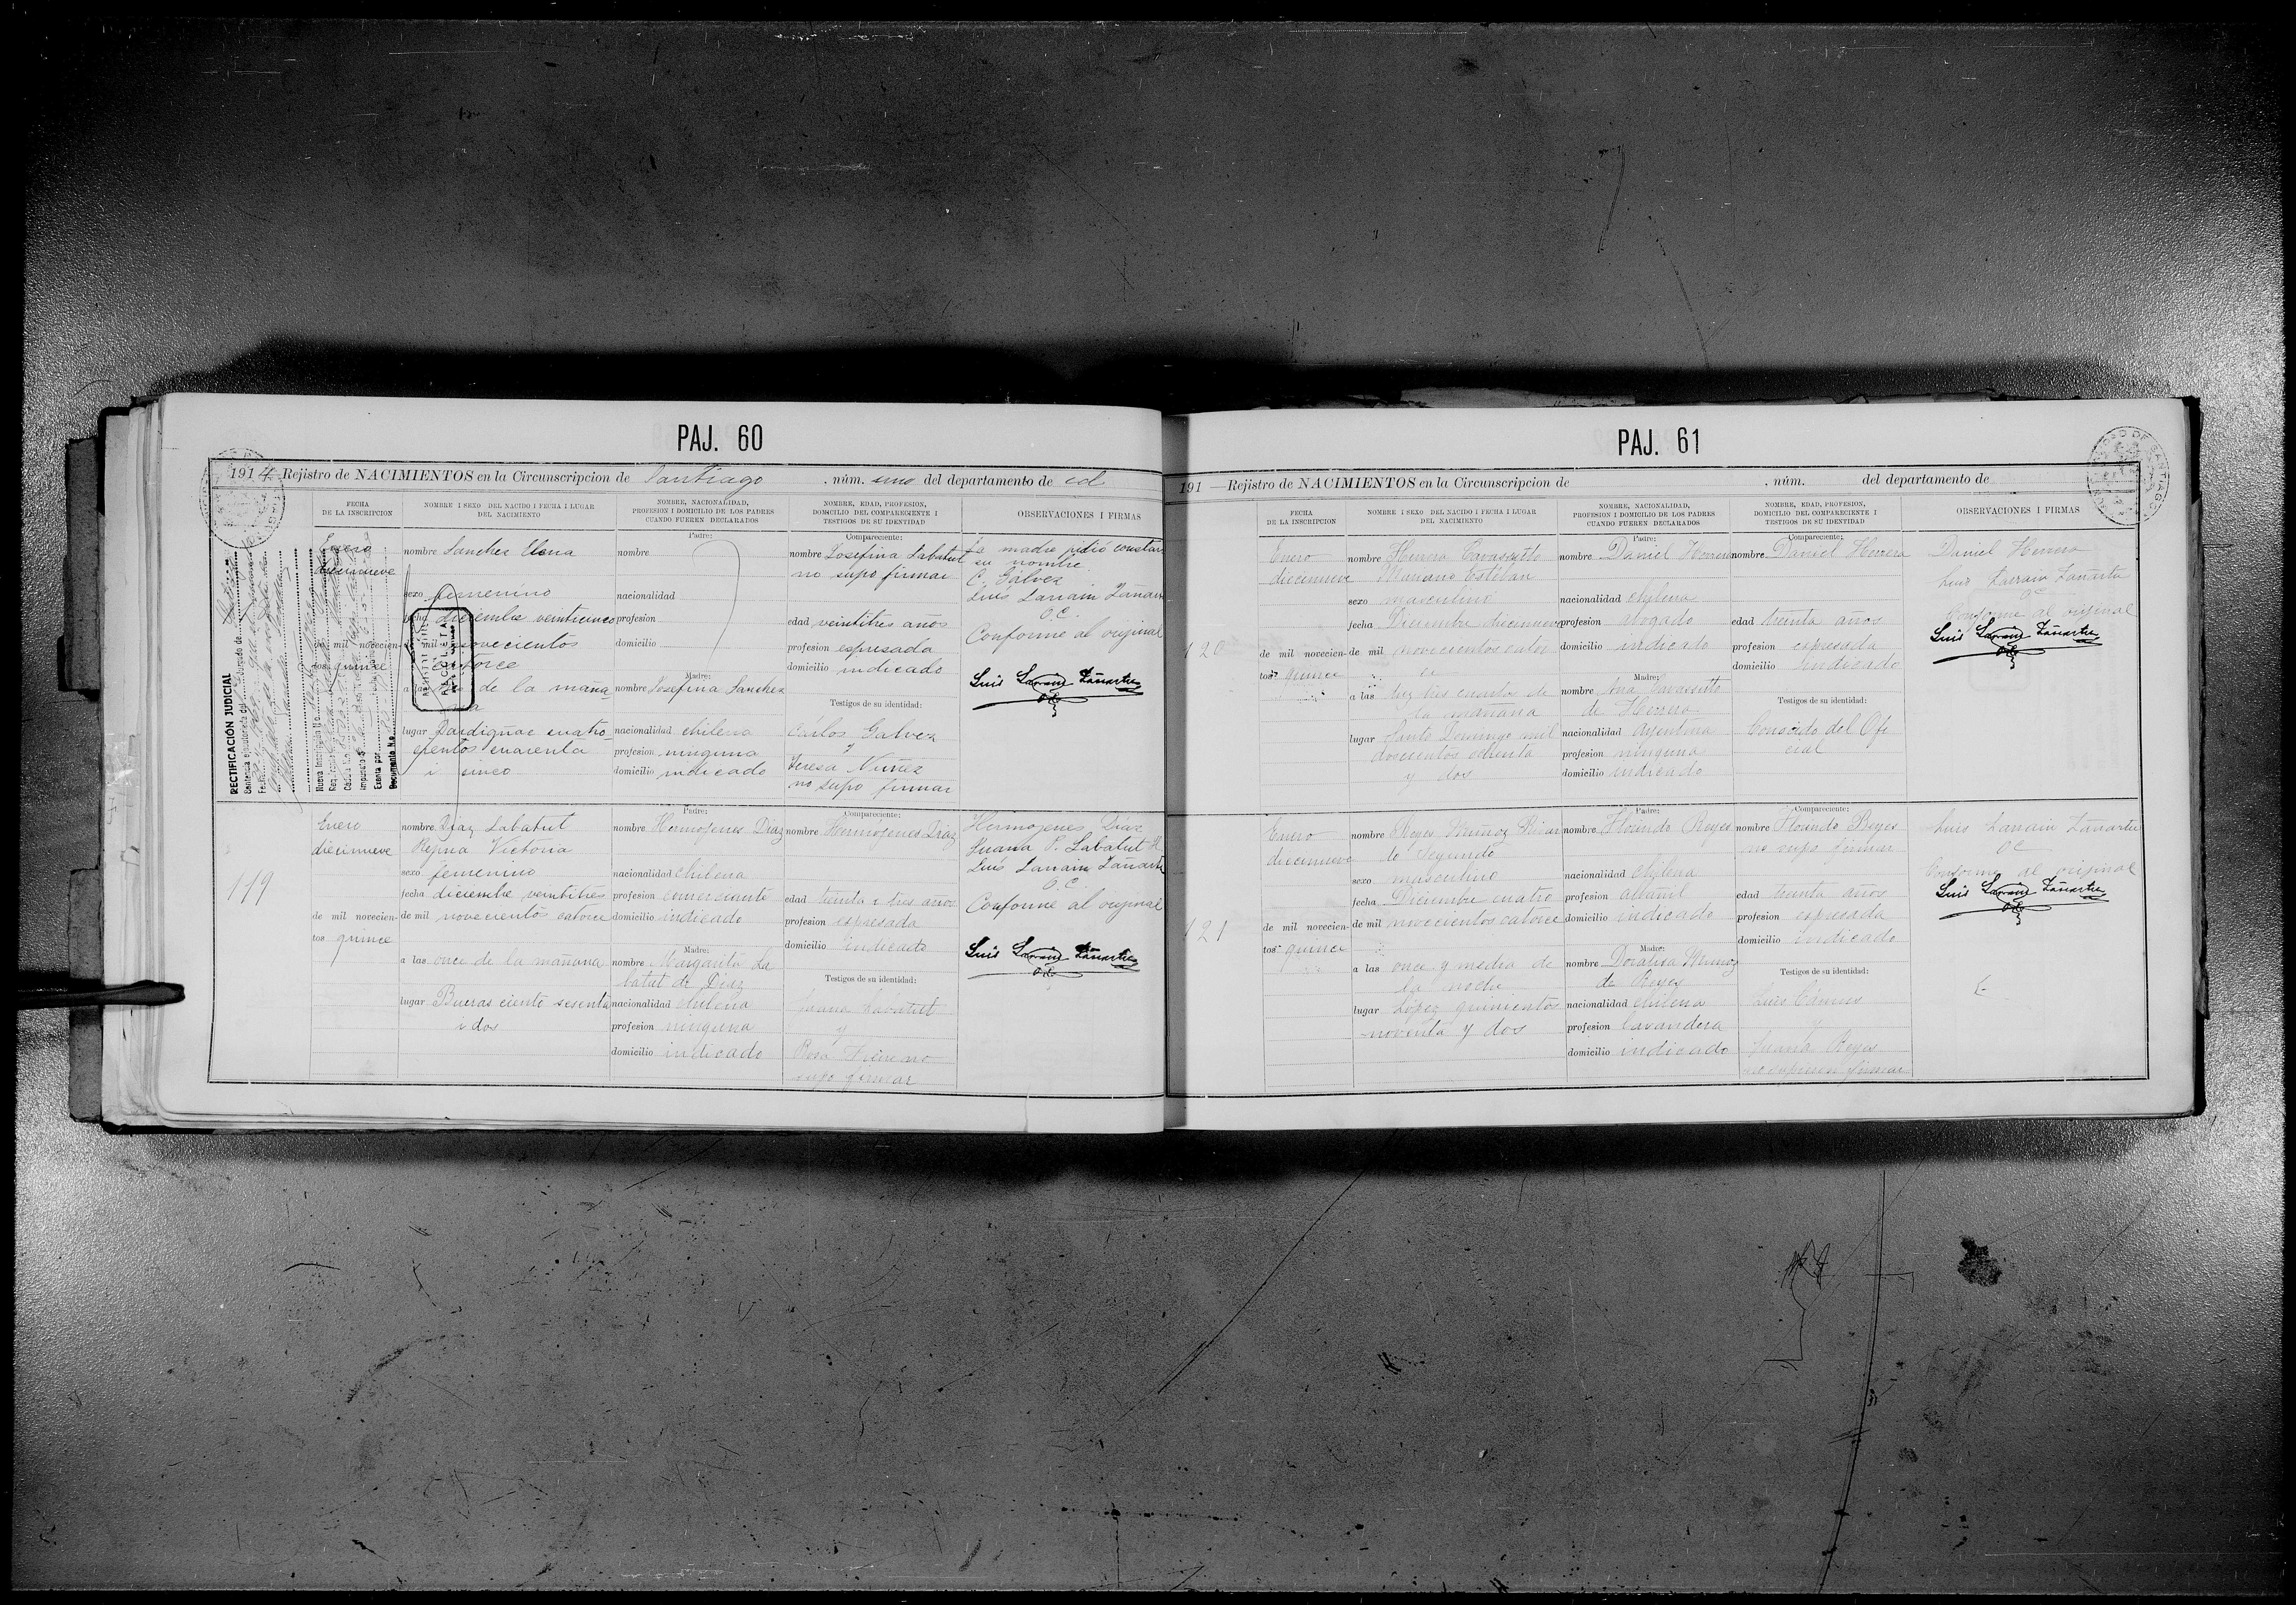 PAJ. 60
1914 - Rejistro de NACIMIENTOS en la Circunscripcion de Santiago, núm. uno del departamento de id
FECHA
DE LA INSCRIPCION
NOMBRE I SEXO DEL NACIDO I FECHA I LUGAR
DEL NACIMIENTO
NOMBRE, NACIONALIDAD,
PROFESION I DOMICILIO DE LOS PADRES
CUANDO FUEREN DECLARADOS
NOMBRE, EDAD, PROFESION,
DOMICILIO DEL COMPARECIENTE I
TESTIGOS DE SU IDENTIDAD
OBSERVACIONES I FIRMAS
RECTIFICACIÓN JUDICIAL
Enero
diecinueve
de mil novecien-
tos quince
nombre Sanchez Elena
sexo femenino
fecha diciembre veinticinco
de mil novecientos
catorce
a las de la maña
na
lugar Dardignac cuatro-
cientos cuarenta
i sinco
Padre:
nombre
nacionalidad
profesion
domicilio
Madre:
nombre Josefina Sanchez
nacionalidad chilena
profesion ninguna
domicilio indicado
Compareciente:
nombre Josefina Labatut
no supo firmar
edad veintitres años
profesion espresada
domicilio indicado
Testigos de su identidad:
Cárlos Galvez
y
Teresa Nuñez
no supo firmar
La madre pidió constar
su nombre
C. Gálvez
Luis Larrain Zañartu
O.C.
Conforme al orijinal
Luis Larrain Zañartu
O.C.
119
Enero
diecinueve
de mil novecien-
tos quince
nombre Diaz Labatut
Rejina Victoria
sexo femenino
fecha diciembre veintitres
de mil novecientos catorce
a las once de la mañana
lugar Bueras ciento sesenta
i dos
Padre:
nombre Hermojenes Diaz
nacionalidad chilena
profesion comerciante
domicilio indicado
Madre:
nombre Margarita La
batut de Diaz
nacionalidad chilena
profesion ninguna
domicilio indicado
Compareciente:
nombre Hermojenes Diaz
edad treinta i tres años
profesion espresada
domicilio indicado
Testigos de su identidad:
Juana Labatut
y
Rosa no
supo firmar
Hermojenes Diaz
Juana P. Labatut H
Luis Larrain Zañartu
O.C.
Conforme al orijinal
Luis Larrain Zañartu
O.C.
PAJ. 61
191 - Rejistro de NACIMIENTOS en la Circunscripcion de , núm. del departamento de
FECHA
DE LA INSCRIPCION
NOMBRE I SEXO DEL NACIDO I FECHA I LUGAR
DEL NACIMIENTO
NOMBRE, NACIONALIDAD,
PROFESION I DOMICILIO DE LOS PADRES
CUANDO FUEREN DECLARADOS
NOMBRE, EDAD, PROFESION,
DOMICILIO DEL COMPARECIENTE I
TESTIGOS DE SU IDENTIDAD
OBSERVACIONES I FIRMAS
120
Enero
diecinueve
de mil novecien-
tos quince
nombre Herrera Cavassutto
Mariano Estéban
sexo masculino
fecha Diciembre diecinueve
de mil novecientos cator
ce
a las diez tres cuarto de
la mañana
lugar Santo Domingo mil
doscientos ochenta
y dos
Padre:
nombre Daniel Herrera
nacionalidad chilena
profesion abogado
domicilio indicado
Madre:
nombre Ana Cavassutto
de Herrera
nacionalidad argentina
profesion ninguna
domicilio indicado
Compareciente:
nombre Daniel Herrera
edad treinta años
profesion espresada
domicilio indicado
Testigos de su identidad:
Conocido del Ofi
cial
Daniel Herrera
Luis Larrain Zañartu
OC
Conforme al orijinal
Luis Larrain Zañartu
O.C.
121
Enero
diecinueve
de mil novecien-
tos quince
nombre Reyes Muñoz Ricar
do Segundo
sexo masculino
fecha Diciembre cuatro
de mil novecientos catorce
a las once y media de
la noche
lugar López quinientos
noventa y dos
Padre:
nombre Florindo Reyes
nacionalidad chilena
profesion albañil
domicilio indicado
Madre:
nombre Doralisa Muñoz
de Reyes
nacionalidad chilena
profesion lavandera
domicilio indicado
Compareciente:
nombre Florindo Reyes
no supo firmar
edad treinta años
profesion espresada
domicilio indicado
Testigos de su identidad:
Luis Cámus
y
Juana Reyes
no supieron firmar
Luis Larrain Zañartu
OC
Conforme al orijinal
Luis Larrain Zañartu
O.C.